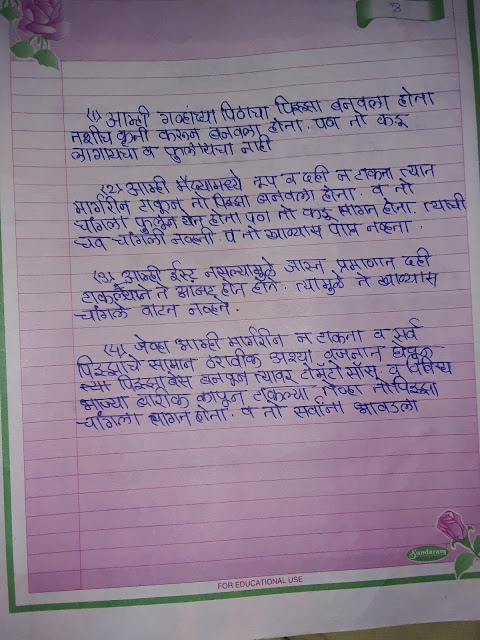 8
(1) आम्ही गव्हाच्या पिठाचा पिझ्झा बनवला होता
तशीच कृती करून बनवला होता. पण तो कडू
लागायचा व फुलायचा नाही
(2) आम्ही मैद्यामध्ये तूप व दही न टाकता त्यात
मार्गरीन टाकून तो पिझ्झा बनवला होता. व तो
चांगला फुलून येत होता पण तो कडू लागत होता. त्याची
चव चांगली नव्हती. व तो खाण्यास योग्य नव्हता.
(3) आम्ही ईस्ट नसल्यामुळे जास्त प्रमाणात दही
टाकल्याने ते आंबट होत होते. त्यामुळे ते खाण्यास
चांगले वाटत नव्हते.
(4) जेव्हा आम्ही मार्गरीन न टाकता व सर्व
पिझ्झाचे सामान ठरावीक अश्या वजनात घेऊन
त्या पिझ्झा बेस बनवून त्यावर टोमॅटो सॉस व विविध
भाज्या बारीक कापून टाकल्या तेव्हा तो पिझ्झा
चांगला लागत होता. व तो सर्वांना आवडला
Sundaram
FOR EDUCATIONAL USE